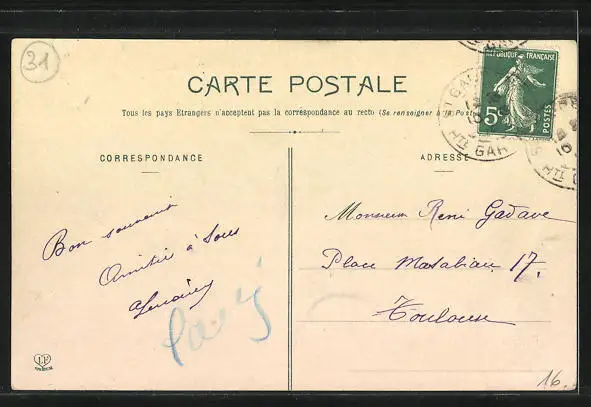 31
CARTE POSTALE
Tous les pays Etrangers n'acceptent pas la correspondance au recto (Se renseigner à la Poste)
RÉPUBLIQUE FRANÇAISE
5c
POSTES
Hte GAR
CORRESPONDANCE
ADRESSE
Bon souvenir
Amitié à tous
Monsieur René Gadave
Place Matabiau 17.
Toulouse
LF
16.